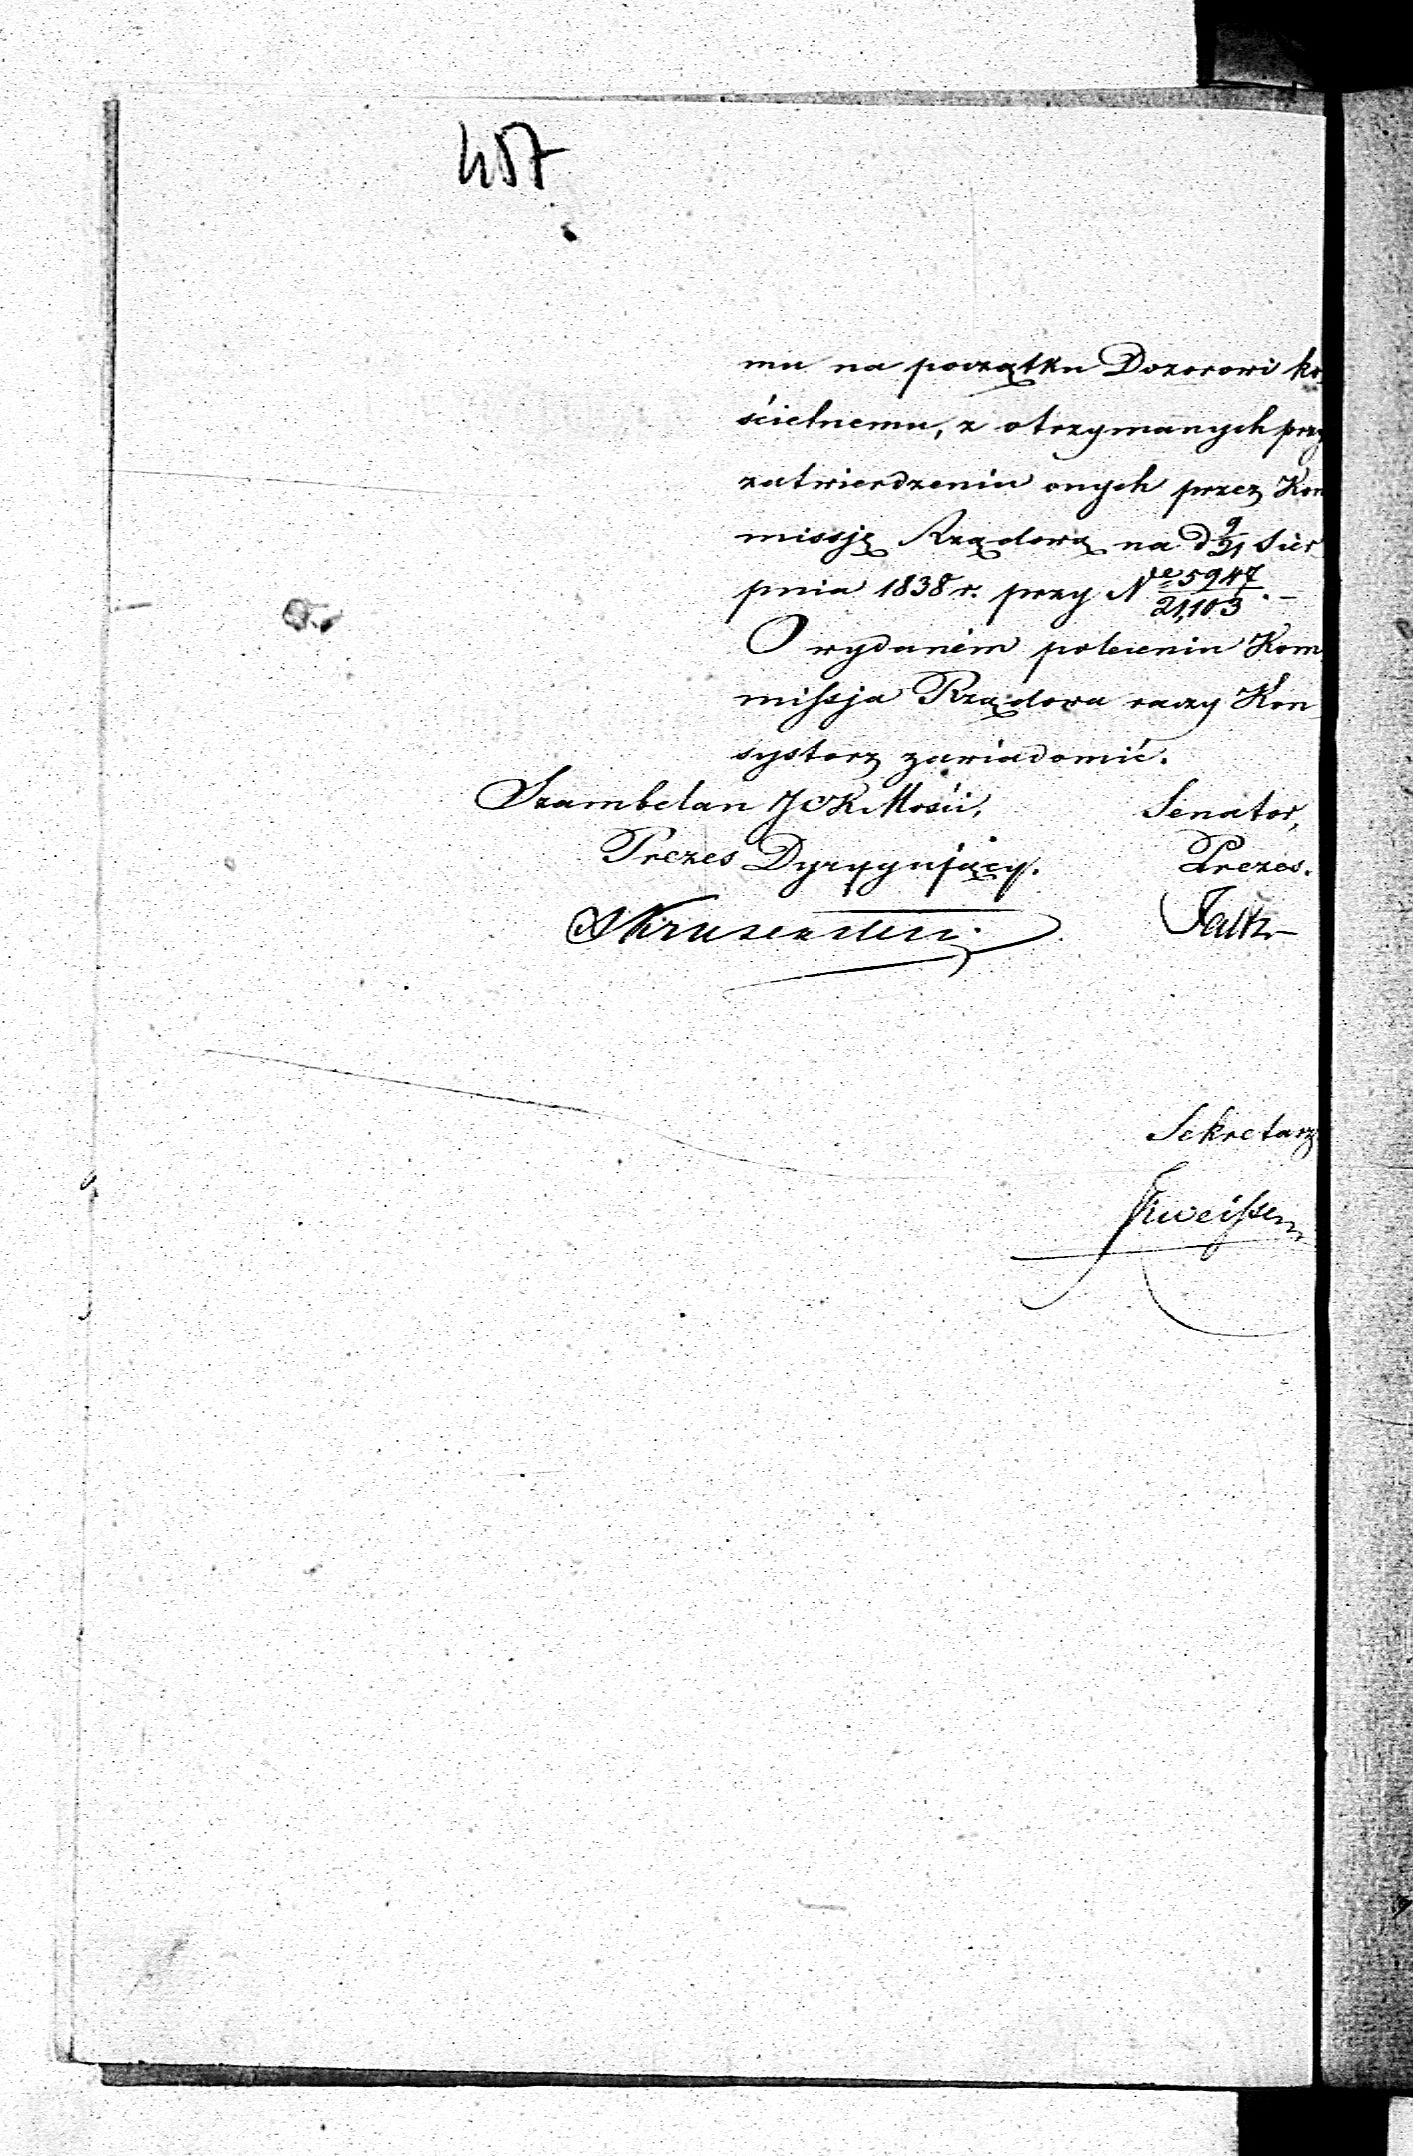 457
mu na początku Dozorowi ko-
ścielnemu, z otrzymanych przy
zatwierdzeniu onych przez Kom
missję Rządową na d 9/21 Sier
pnia 1838 r. przy Nr 5947/21,103. –
O wydaném poleceniu Kom
missja Rządowa raczy Kon-
systorz zawiadomić.
Szambelan JCKMości, Senator,
Prezes Dyrygujący. Prezes.
Krusenstern.
Sekretarz